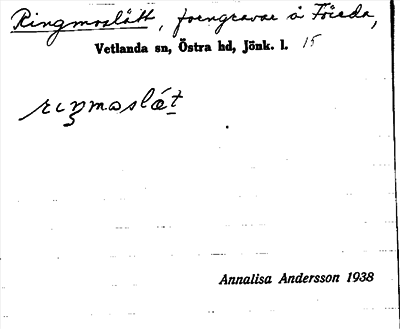 Ringmoslätt, forngravar å Föreda,
Vetlanda sn, Östra hd, Jönk. l. 15
riŋmoslät
Annalisa Andersson 1938